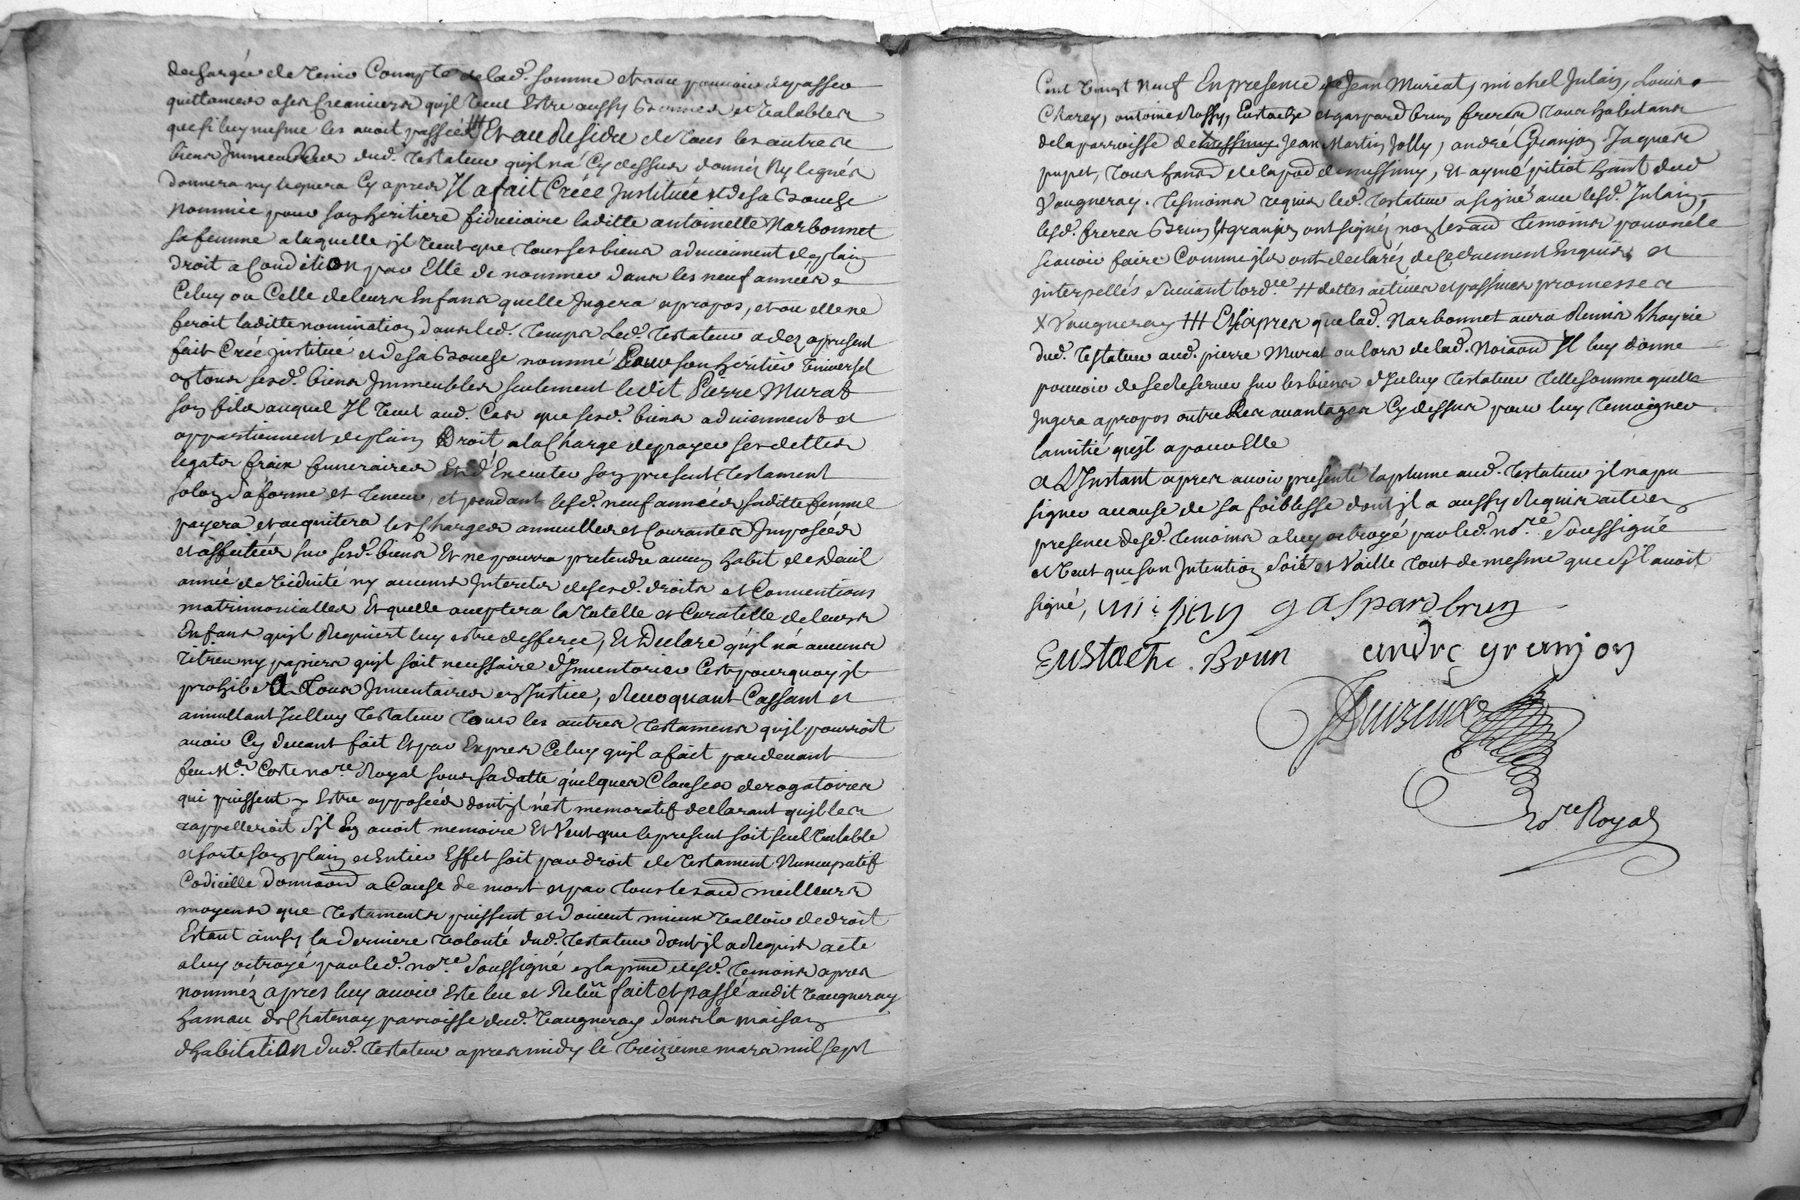 dechargée de tenir Compte de lad. somme et avec pouvoir de passer
quittances a ses Creanciers qu'jl veut Estre aussy Bonnes et Valables
que si luy mesme les avoit passées ttt Et au Residu de tous les autres
biens Jmmeubles dud. testateur qu'jl n'a Cy dessus donnés Ny legués
donnera ny leguera Cy apres Jl a fait Créée Jnstituée et de sa Bouche
Nommée pour son heritiere fiduciaire laditte antoinette Narbonnet
sa femme a laquelle jl veut que tous ses biens adviennent de plain
droit a Condition par Elle de nommer dans les neuf années
Celuy ou Celle de leurs Enfans quelle Jugera a propos, et ou elle ne
feroit laditte nomination dans led. temps Led. testateur a dez apresent
fait Créé jnstitué et de sa Bouche nommé Pour son heritier Vniversel
en tous sesd. biens Jmmeubles seulement ledit Pierre Murat
son fils auquel Jl veut aud. Cas que sesd. biens adviennent et
appartiennent de plain Droit a la Charge de payer ses dettes
legats fraix funeraires Et d'Executer son present testament
selon sa forme et teneur, et pendant lesd. neuf années saditte femme
payera et acquitera les Charges annuelles et Courantes Jmposées
et affectées sur sesd. biens Et ne pourra pretendre aucun habit de deuil
année de Viduité ny aucuns Jnterets de sesd. droits et Conventions
matrimonialles Et quelle aceptera la tutelle et Curatelle de leurs
Enfans qu'jl Requiert luy estre defferée, Et Declare qu'jl n'a aucuns
titres ny papiers qu'jl soit necessaire d'Jnventorier C'est pourquoy jl
prohibe A tous Jnventaires en Justice, Revoquant Cassant et
annullant Jcelluy testateur tous les autres testaments qu'jl pourroit
avoir Cy devant fait Et par Expres Celuy qu'jl a fait pardevant
feu Me. Coste nore Royal sous sa datte quelques Clauses derogatoires
qui puissent y Estre apposées dont jl n'est memoratif declarant qu'jl les
rappelleroit s'jl En avoit memoire Et Veut que le present soit seul Valable
et sorte son plain et Entier Effet soit par droit de testament Nuncupatif
Codicille donnaon a Cause de mort et par tous les aud meilleurs
moyens que testaments puissent et doivent mieux Valloir de droit
Estant ainsy la derniere Volonté dud. testateur dont jl a Requis acte
a luy octroyé par led. nore. Soussigné en la pnce desd. temoins apres
nommés apres luy avoir Esté leu et Releu fait et passé audit Vaugneray
hameau de Chatenay parroisse dud. Vaugneray dans la maison
d'habitation dud. testateur apres midy le treizieme mars mil sept
Cent vingt Neuf En presence de Jean Muriat, michel Julain, Louis
Charey, antoine Rossy, Eustache et gaspard brun freres tous habitans
de la parroisse de messimy Jean Martin Jolly, andré Granjon Jaques
pupet, tous hans de la pad de messimy, Et aymé pitiot hant dud
Vaugneray. tesmoins requis led. testateur a signé avec lesd. Julain,
lesd. freres Brun Et granjon ont signés non les aud temoins pour ne le
scavoir faire Comme jls ont declarés de Ce duement Enquis et
jnterpellés suivant l'ordce. tt dettes actives et passives promesses
x Vaugneray ttt Et apres que lad. Narbonnet aura Remis L'hoyrie
dud. testateur aud. pierre Murat ou lors de lad. Noiaon Jl luy donne
pouvoir de se Reserver sur les biens d'Jceluy testateur telle somme quelle
Jugera a propos outre les avantages Cy dessus pour luy temoigner
l'amitié qu'jl a pour Elle
A L'Jnstant apres avoir presenté la plume aud. testateur jl n'a pu
signer a cause de sa foiblesse dont jl a aussy Requis acte en
presence desd. temoins a luy octroyé par led. nore. Soussigné
et veut que son Jntention soit et Vaille tout de mesme que s'jl avoit
signé,
gaspard brun
Eustache Brun andre granjon
nore Royal